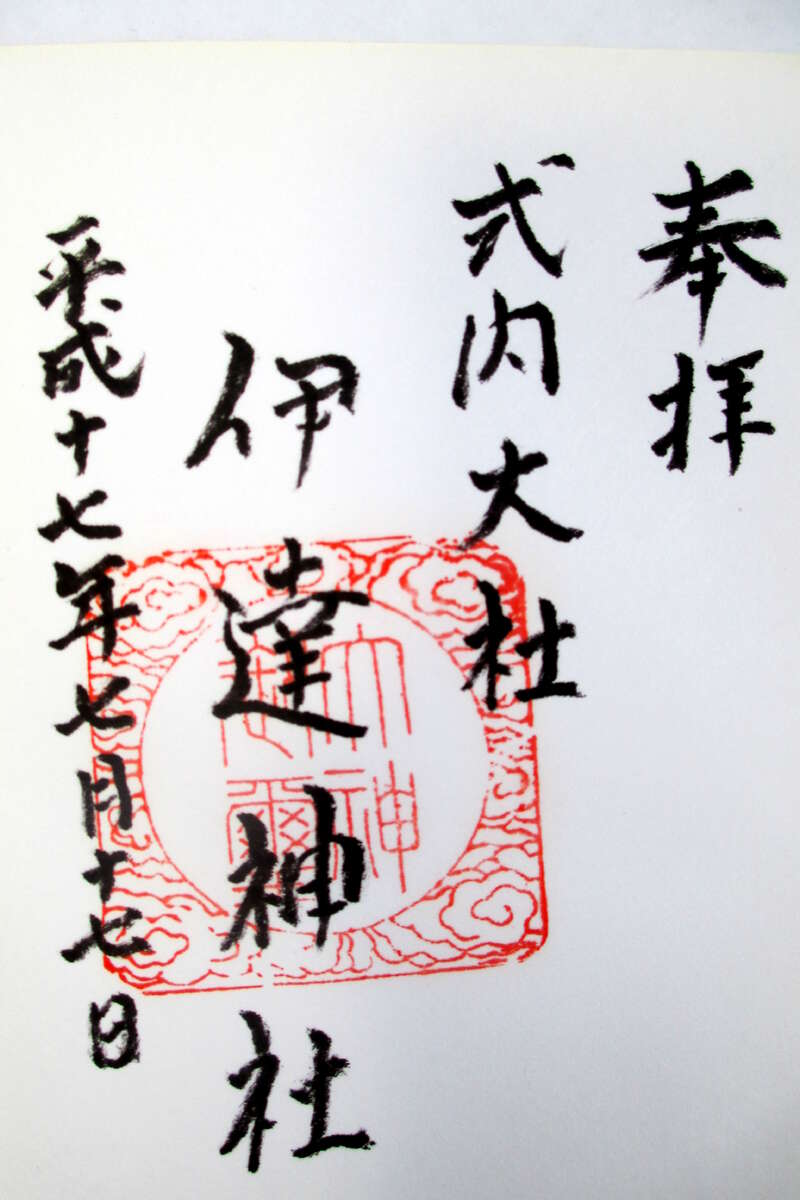 奉拝
式内大社
伊達神社
平成十七年七月十七日